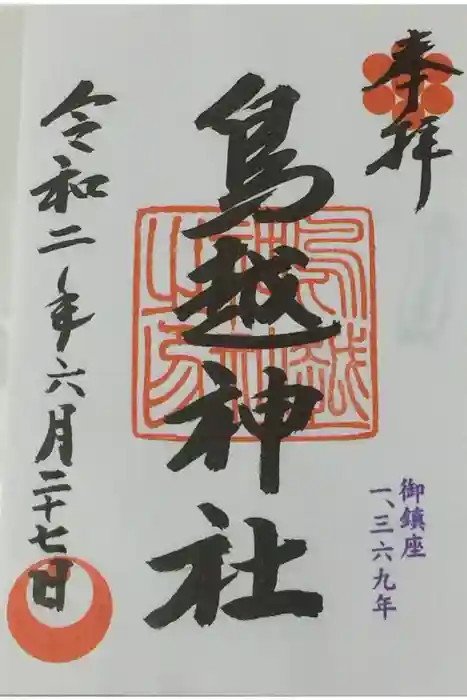 奉拝
鳥越神社
鳥越神社之印
御鎮座
一、三六九年
令和二年六月二十七日